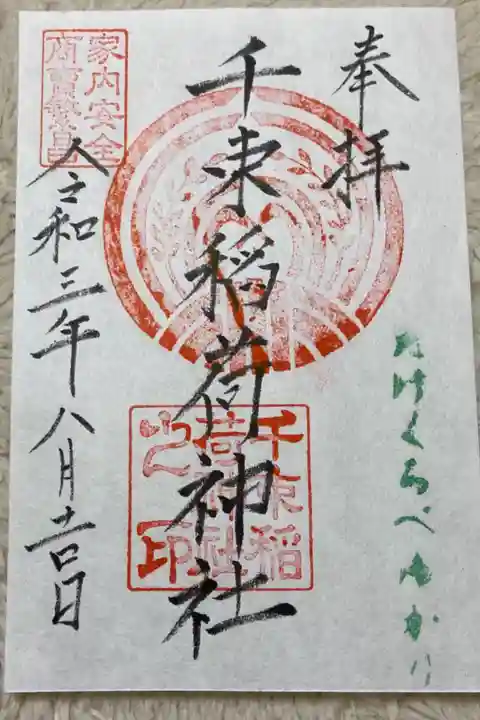 奉拝
たけくらべゆかり
千束稲荷神社
千束稲
荷神社
之印
家内安全
商売繁昌
令和三年八月吉日